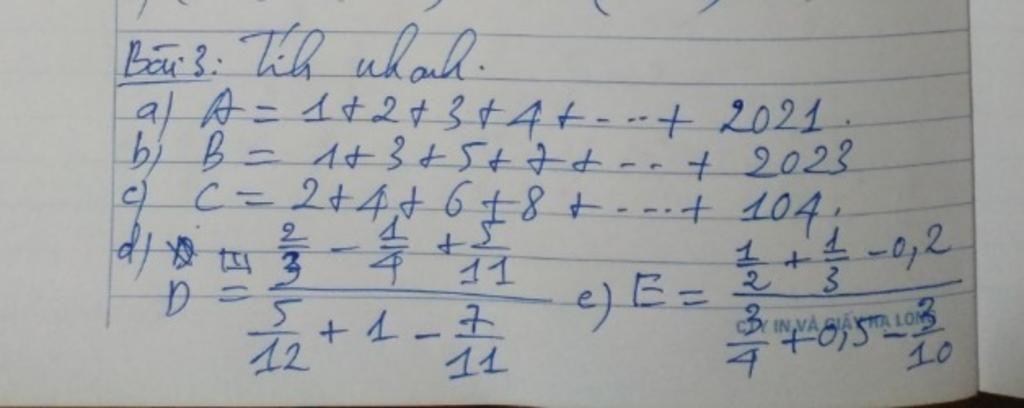 Bài 3: Tính nhanh.
a) A = 1 + 2 + 3 + 4 + --- + 2021.
b) B = 1 + 3 + 5 + 7 + --- + 2023
c) C = 2 + 4 + 6 + 8 + --- + 104.
d) D = (2/3 - 1/4 + 5/11) / (5/12 + 1 - 7/11)
e) E = (1/2 + 1/3 - 0,2) / (3/4 + 0,5 - 3/10)
CTY IN VÀ GIẤY HẠ LONG